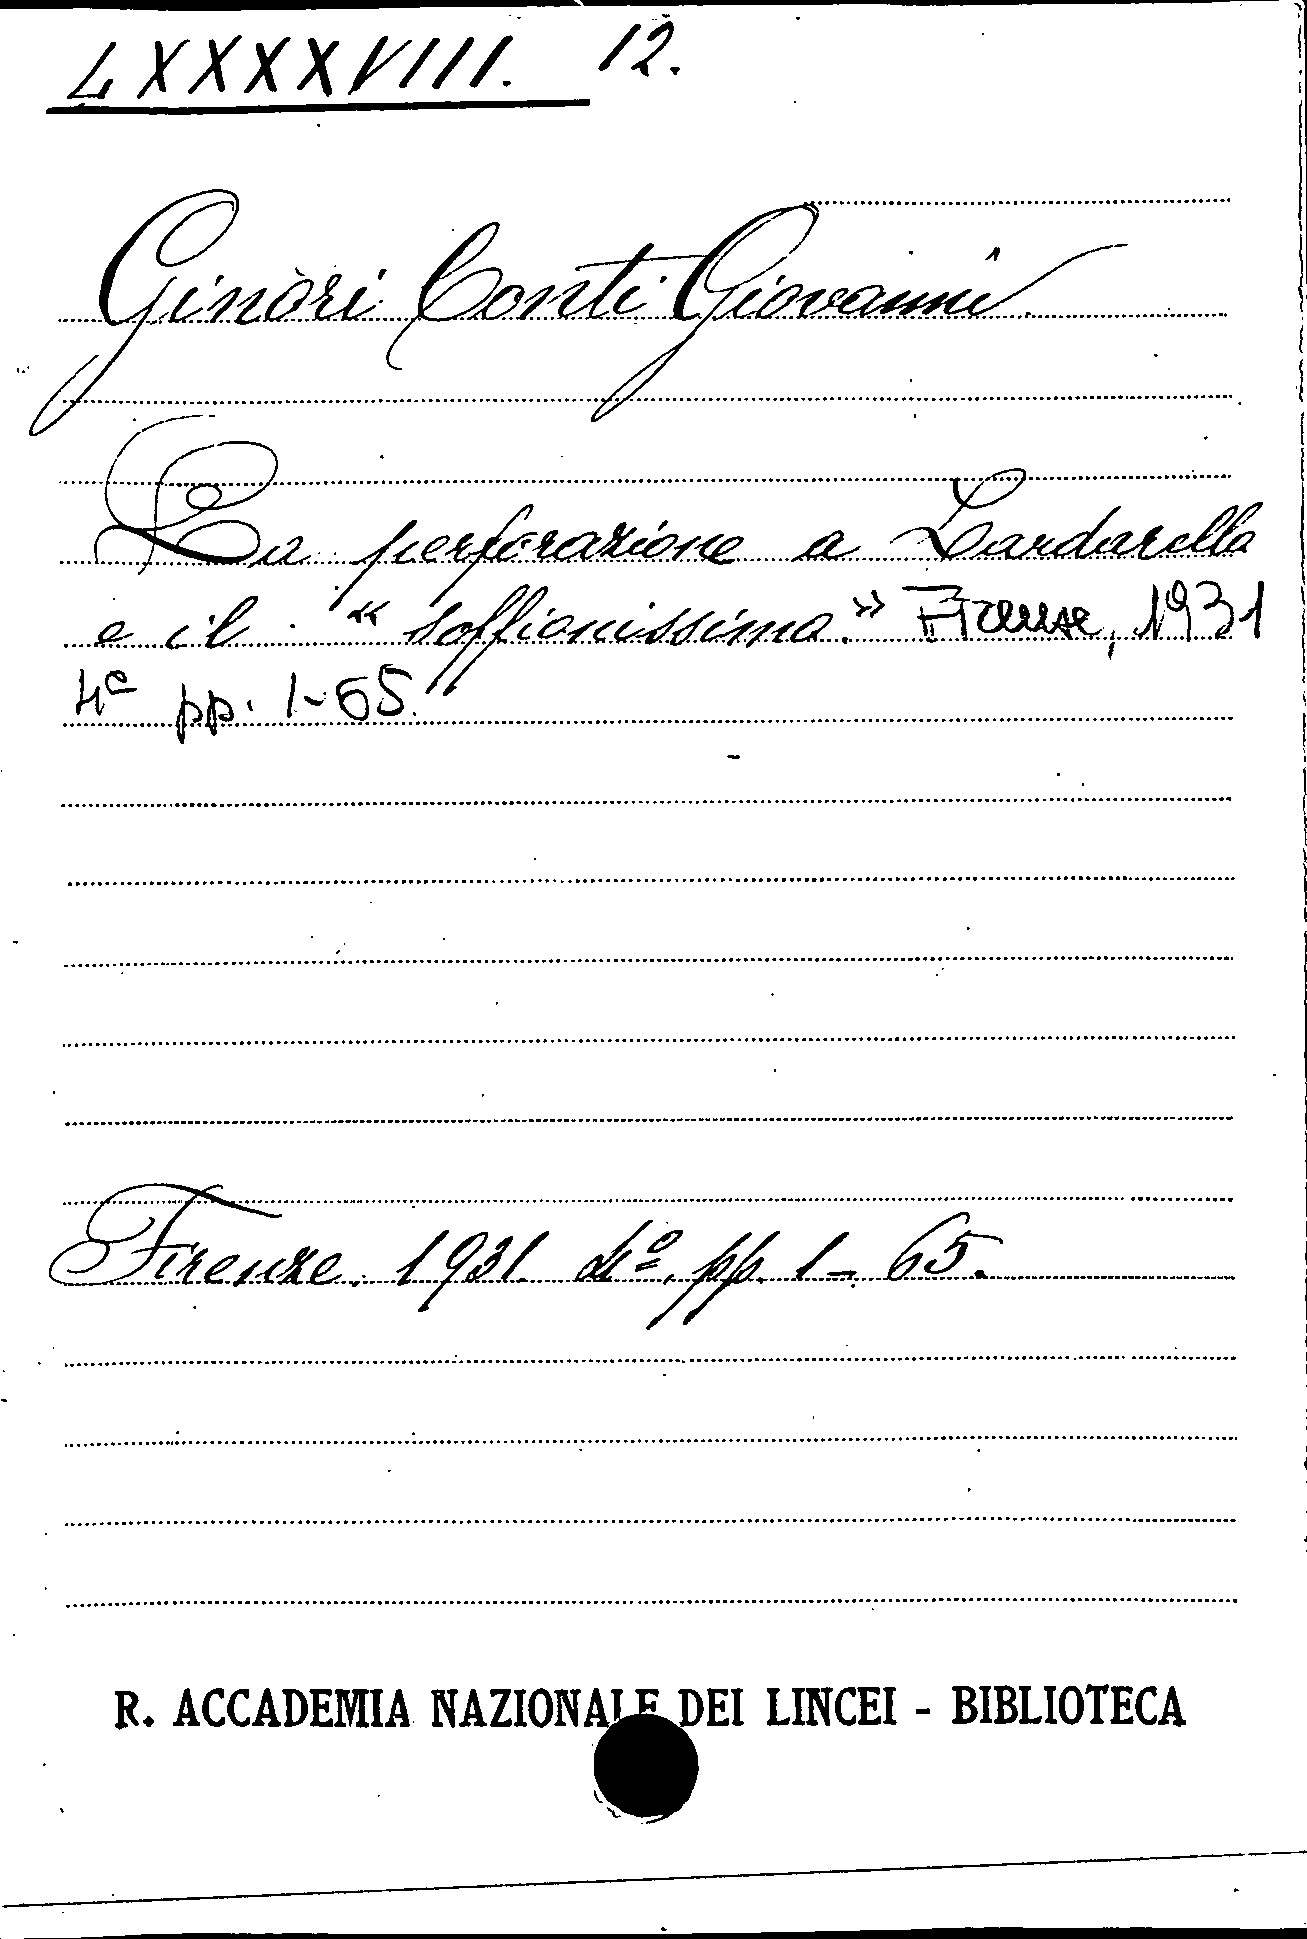 LXXXXVIII. 12.
Ginori Conti Giovanni
La perforazione a Lardarello
e il "soffionissimo." Firenze, 1931
4º pp. 1-65.
Firenze. 1931. 4º. pp. 1-65.
R. ACCADEMIA NAZIONALE DEI LINCEI - BIBLIOTECA